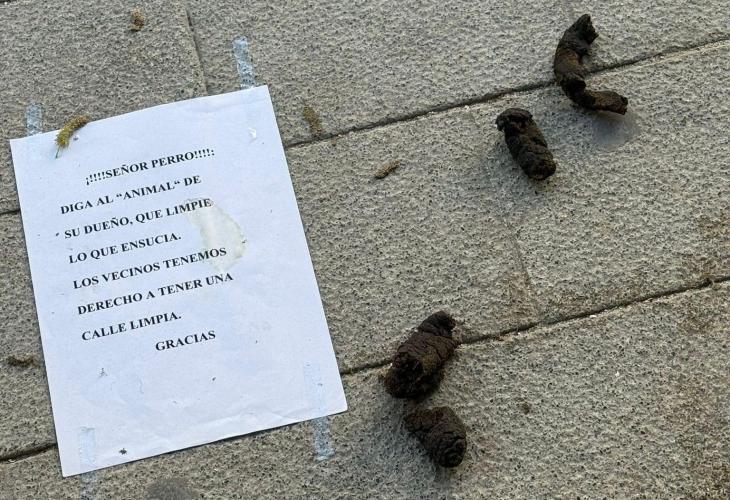 ¡!!!!SEÑOR PERRO!!!!:
DIGA AL “ANIMAL“ DE
SU DUEÑO, QUE LIMPIE
LO QUE ENSUCIA.
LOS VECINOS TENEMOS
DERECHO A TENER UNA
CALLE LIMPIA.
GRACIAS